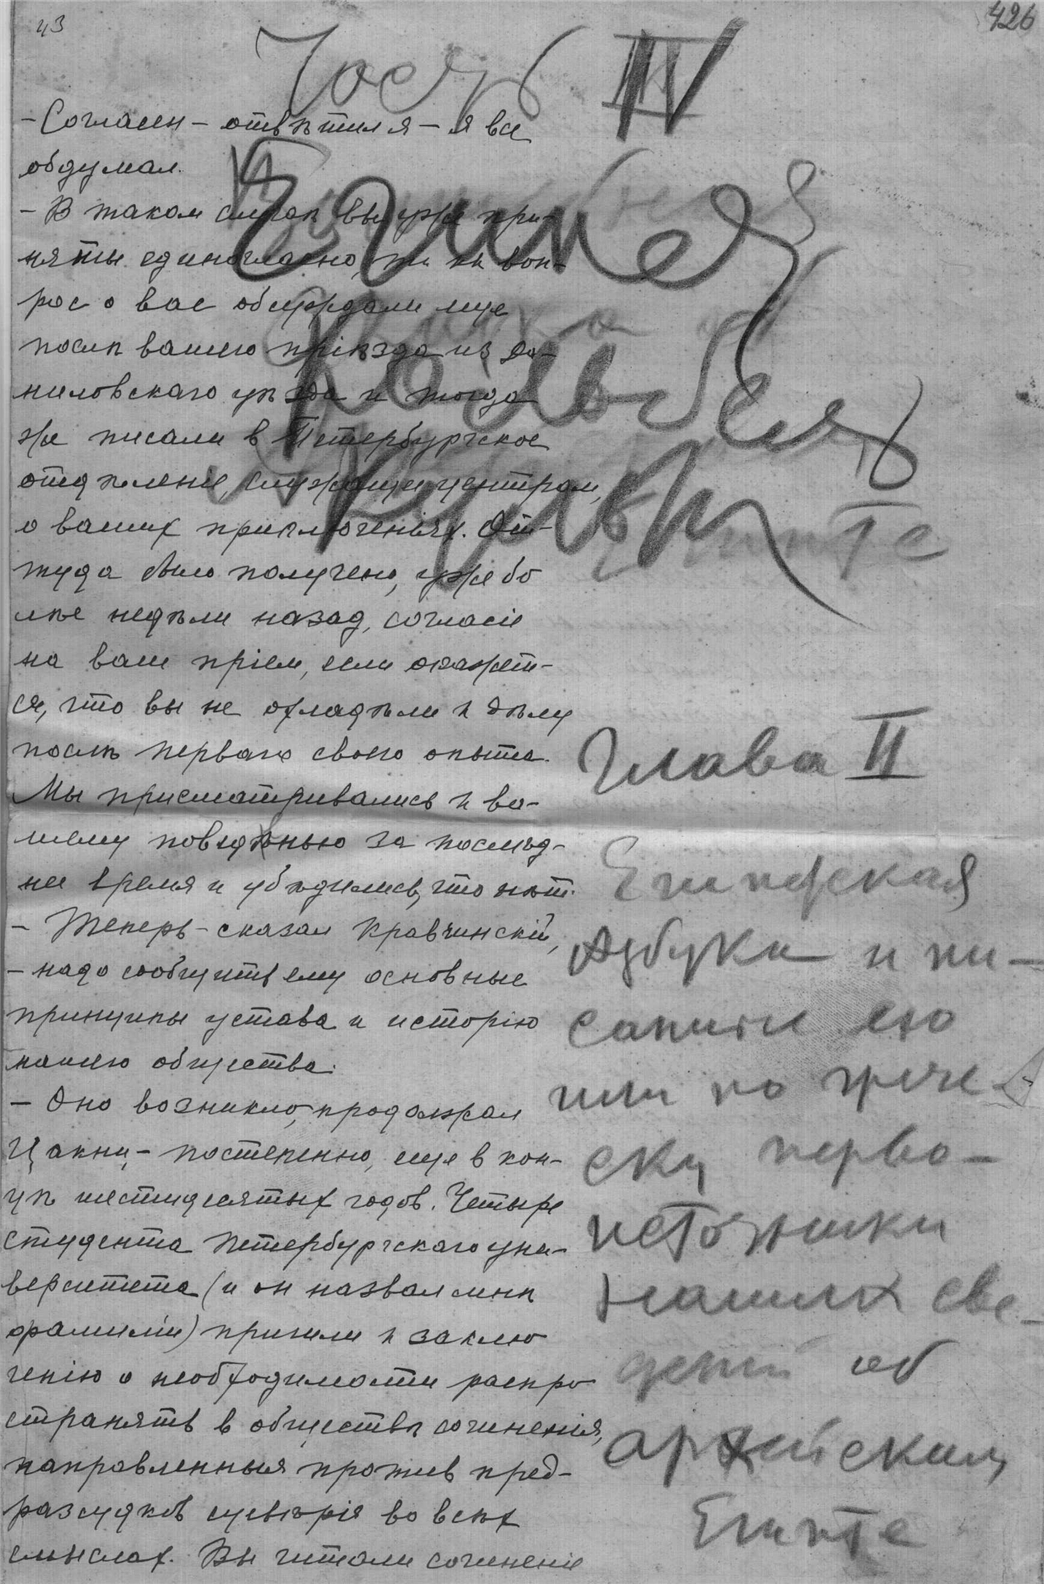 43
426
Часть IV
– Согласен – отвѣтил я – я все
обдумал.
– В таком случаѣ вы уже при-
няты единогласно, т. к. воп-
рос о вас обсуждали еще
послѣ вашего пріѣзда из Да-
ниловскаго уѣзда и тогда
же писали в Петербургское
отдѣленіе служащее центром,
о ваших приключеніях. От-
туда было получено, уже бо
лѣе недѣли назад, согласіе
на ваш пріем, если окажет-
ся, что вы не охладѣли к дѣлу
послѣ перваго своего опыта.
Мы присматривались к ва-
шему поведенью за послѣд-
нее время и убѣдились, что нѣт.
– Теперь – сказал Кравчинскій,
– надо сообщить ему основные
принципы устава и исторію
нашего общества.
– Оно возникло, продолжал
Цакни – постепенно, еще в кон-
цѣ шестидесятых годов. Четыре
студента Петербургскаго уни-
верситета (и он назвал мнѣ
фамиліи) пришли к заклю
ченію о необходимости распро
странять в обществѣ сочиненія,
направленныя против пред-
разсудков суевѣрія во всѣх
смыслах. Вы читали сочиненіе
Египет
колыбель
Египте
Глава II
Египетская
Азбука и пи-
сание ею
или по грече-
ски перво-
источники
наших све-
дений об
армейском
Египте